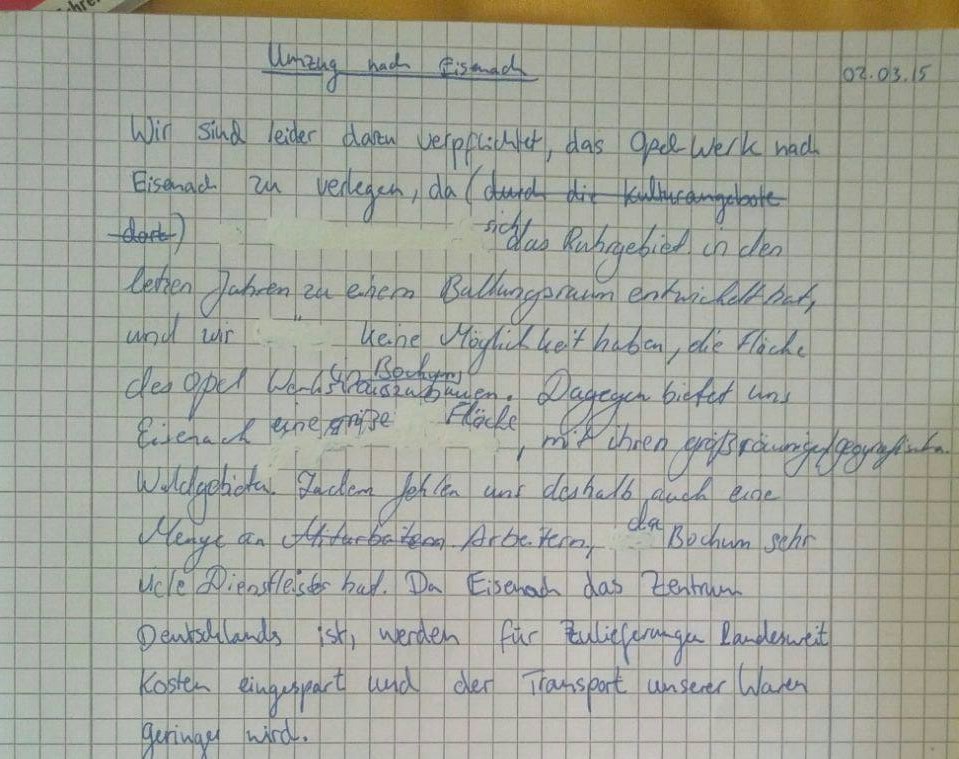 Umzug nach Eisenach
02.03.15
Wir sind leider dazu verpflichtet, das Opel-Werk nach
Eisenach zu verlegen, da (durch die Kulturangebote
dort) sich das Ruhrgebiet in den
letzen Jahren zu einem Ballungsraum entwickelt hat,
und wir keine Möglichkeit haben, die Fläche
des Opel Werks in Bochum auszubauen. Dagegen bietet uns
Eisenach eine größe Fläche, mit ihren großräumgef geografischen
Waldgebieten. Zudem fehlen uns deshalb auch eine
Menge an Mitarbeitern Arbeitern, da Bochum sehr
viele Dienstleister hat. Da Eisenach das Zentrum
Deutschlands ist, werden für Zulieferungen Landesweit
Kosten eingespart und der Transport unserer Waren
geringer wird.